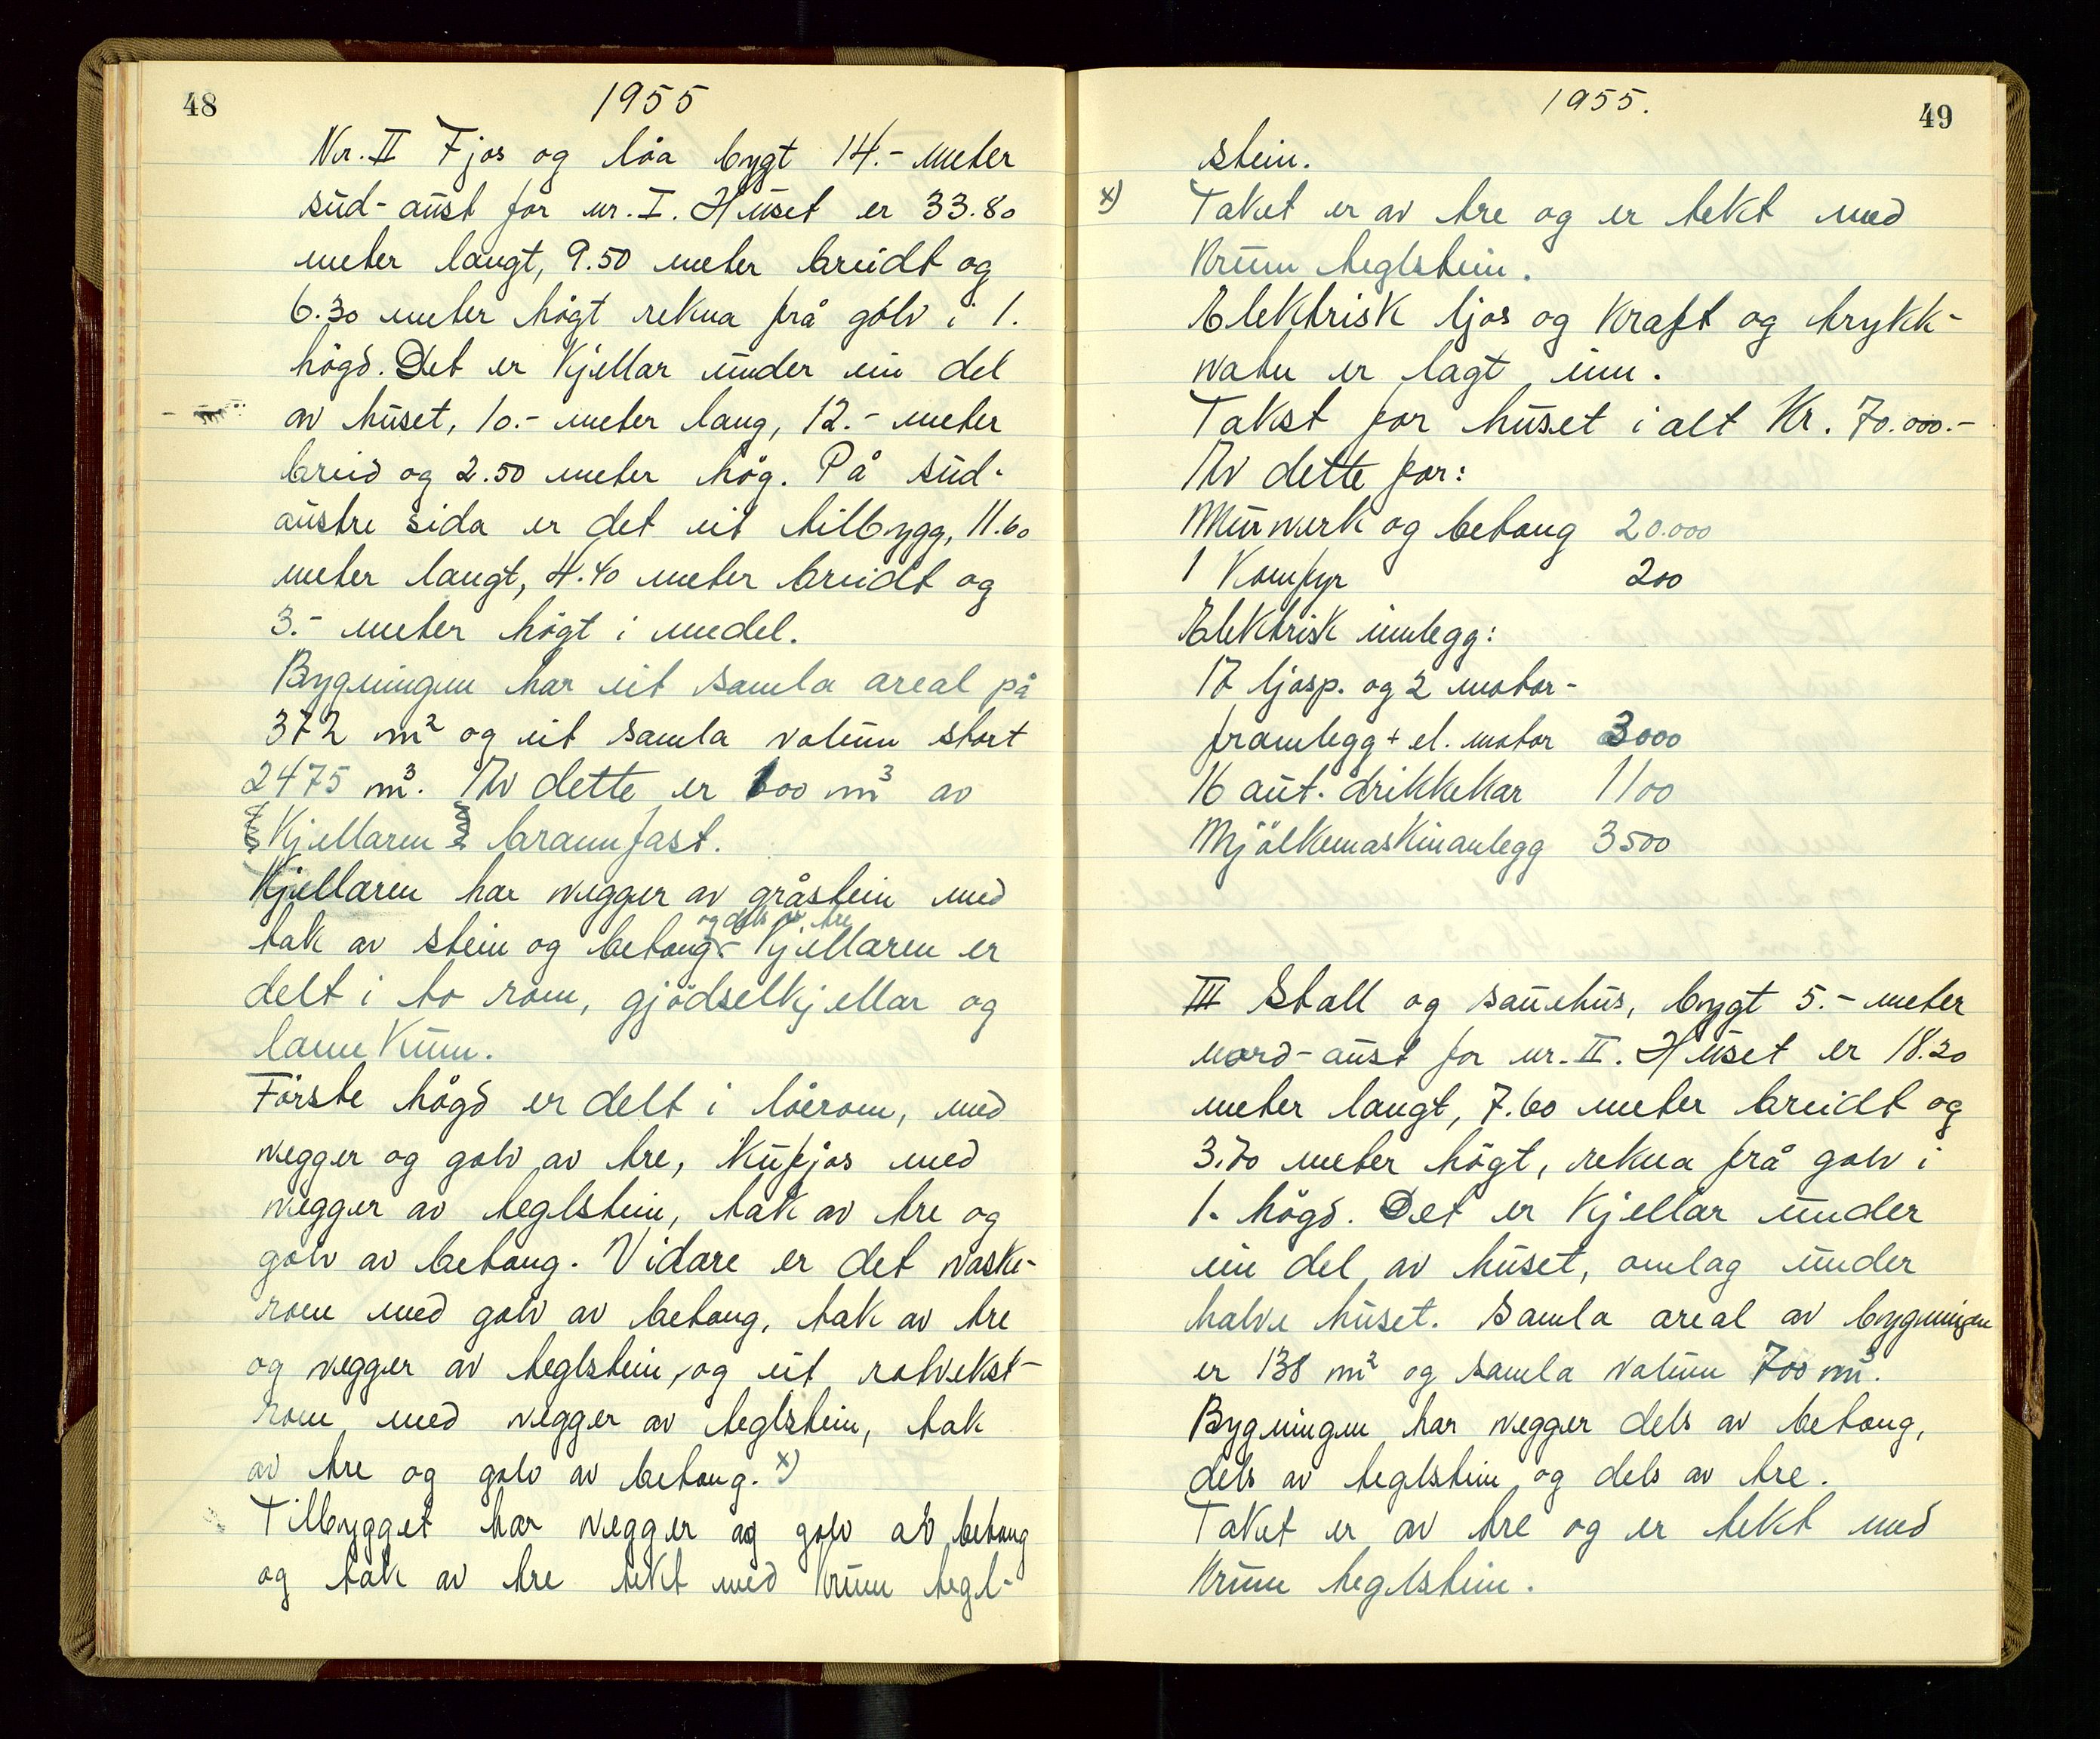 48
1955
Nr. II Fjos og löa bygt 14.- meter
süd-aüst for nr. I. Hüset er 33.80
meter langt, 9.50 meter breidt og
6.30 meter högt rekna frå golv i 1.
högd. Det er Kjellar ünder ein del
av hüset, 10.- meter lang, 12.- meter
breid og 2.50 meter hög. På süd-
aüstre sida er det eit tilbygg, 11.60
meter langt, 4.40 meter breidt og
3.- meter högt i medel.
Bygningen har eit samla areal på
372 m² og eit samla volüm stort
2475 m³. Av dette er 100 m³ av
Kjellaren brannfast.
Kjellaren har vegger av gråstein med
og dels av tre
tak av stein og betong. Kjellaren er
delt i to rom, gjödselkjellar og
lannküm.
Förste högd er delt i löerom, med
vegger og golv av tre, Küfjos med
vegger av teglstein, tak av tre og
golv av betong. Vidare er det vaske-
rom med golv av betong, tak av tre
og vegger av teglstein, og eit rotvekst-
rom med vegger av teglstein, tak
av tre og golv av betong. x)
Tilbygget har vegger og golv av betong
og tak av tre tekt med Krüm tegl-
1955.
49
stein.
x) Taket er av tre og er tekt med
Krüm teglstein.
Elektrisk ljos og kraft og trykk-
vatn er lagt inn.
Takst for hüset i alt Kr. 70.000.-
Av dette for:
Mürverk og betong 20.000
1 Komfyr 200
Elektrisk innlegg:
17 ljosp. og 2 motor-
framlegg + el. motor 3000
16 aüt. drikkekar 1100
Mjölkemaskinanlegg 3500
III Stall og saüehüs, bygt 5.- meter
nord-aüst for nr. II. Hüset er 18.20
meter langt, 7.60 meter breidt og
3.70 meter högt, rekna frå golv i
1. högd. Det er Kjellar ünder
ein del av hüset, omlag ünder
halve hüset. Samla areal av bygningen
er 138 m² og samla volüm 700 m³.
Bygningen har vegger dels av betong,
dels av teglstein og dels av tre.
Taket er av tre og er tekt med
Krüm teglstein.